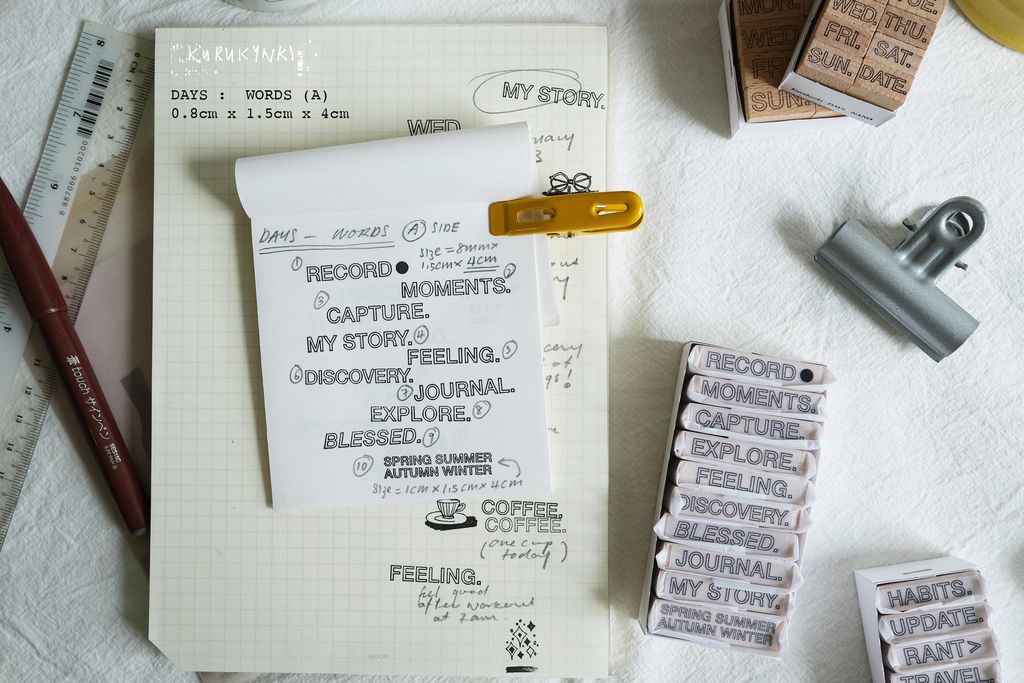 KURUKYNKI
DAYS : WORDS (A)
0.8cm x 1.5cm x 4cm
MY STORY.
WED
DAYS - WORDS (A) SIDE
SIZE = 8mm x
1.5cm x 4cm
1 RECORD●
MOMENTS. 2
3 CAPTURE.
MY STORY. 4
FEELING. 5
6 DISCOVERY.
7 JOURNAL.
EXPLORE. 8
BLESSED. 9
10 SPRING SUMMER
AUTUMN WINTER
SIZE = 1cm x 1.5cm x 4cm
COFFEE.
COFFEE.
(one cup
today)
FEELING.
feel good
after workout
at 7am.
MIDORI
RECORD●
MOMENTS.
CAPTURE.
EXPLORE.
FEELING.
DISCOVERY.
BLESSED.
JOURNAL.
MY STORY.
SPRING SUMMER
AUTUMN WINTER
HABITS.
UPDATE.
RANT>
TRAVEL.
MON.
WED.
FRI.
SUN.
WED.
TUE.
FRI.
THU.
SUN.
SAT.
DATE.
touch サインペン
8 887066 030200